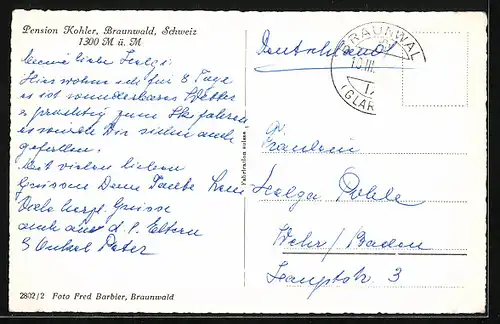 Pension Kohler, Braunwald, Schweiz
1300 M ü. M
Meine liebe Helga!
Hier wohnen ich für 8 Tage
es ist wunderbares Wetter
u prächtig zum Ski fahren
es würde Dir sicher auch
gefallen.
Mit vielen lieben
Grüssen Deine Tante
Viele herzl. Grüsse
auch an d. l. Eltern
Onkel Peter
2802/2 Foto Fred Barbier, Braunwald
Fabrication suisse
Deutschland
BRAUNWAL
10.III.
(GLAR
Fräulein
Helga Pohle
Wehr/Baden
Hauptstr. 3